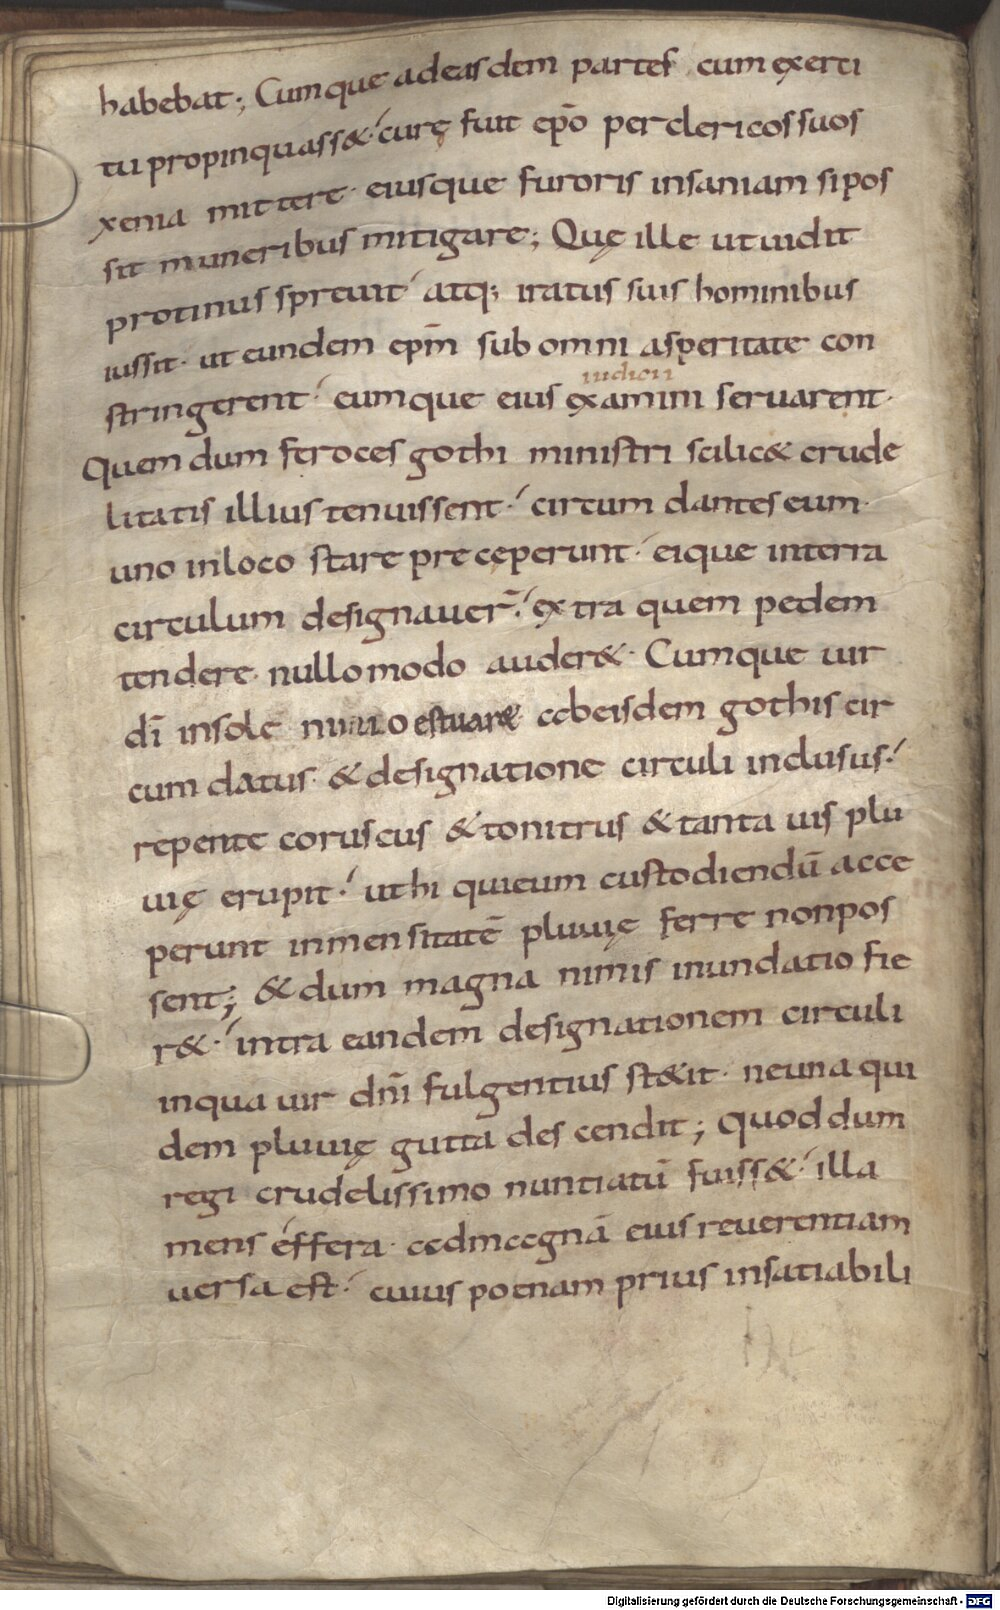 habebat; Cumque adeasdem partes cum exerci
tu propinquass&· cure̜ fuit ep̄o per clericos suos
xenia mittere· eiusque furoris insaniam si pos
sit muneribus mitigare; Que̜ ille ut uidit
protinus spreuit· atq; iratus suis hominibus
iussit· ut eundem ep̄m sub omni asperitate con
iudicii
stringerent· eumque eius examini seruarent·
Quem dum feroces gothi ministri scilic& crude
litatis illius tenuissent· circum dantes eum·
uno inloco stare pre ceperunt· eique interra
circulum designauer̄· extra quem pedem
tendere· nullomodo auder&· Cumque uir
dī insole nimio estuar& abeisdem gothis cir
cum datus· & designatione circuli inclusus·
repente coruscus & tonitrus & tanta uis plu
uie̜ erupit· ut hi quieum custodiendū acce
perunt inmensitatē pluuie̜ ferre nonpos
sent; & dum magna nimis inundatio fie
r&· intra eandem designationem circuli
inqua uir dn̄i fulgentius st&it· neuna qui
dem pluuie̜ gutta des cendit; Quod dum
regi crudelissimo nuntiatū fuiss&· illa
mens effera· admagnā eius reuerentiam
uersa est· cuius poenam prius insatiabili
Digitalisierung gefördert durch die Deutsche Forschungsgemeinschaft - DFG